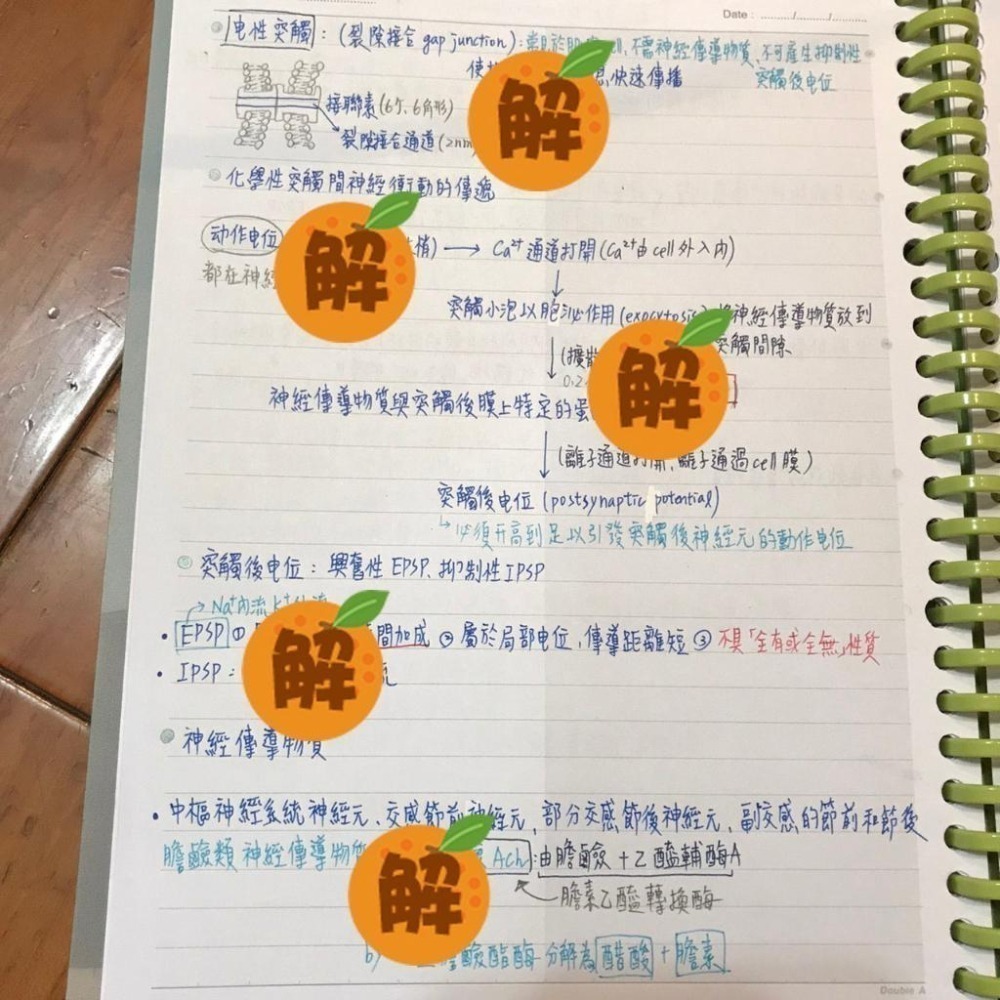 Date : ....../....../......
电性突觸 : (裂隙接合 gap junction) : 常見於 cell, 不需神經傳導物質、不可產生抑制性
使 息,快速傳播 突觸後电位
接聯素(6个、6角形)
裂隙接合通道(2nm
化學性突觸間神經衝動的傳遞
动作电位 梢) → Ca²⁺通道打開(Ca²⁺由cell外入内)
都在神經
突觸小泡以胞泌作用(exocytosis)將神經傳導物質放到
(擴散 突觸間隙
0.2
神經傳導物質與突觸後膜上特定的蛋
(離子通道打開,離子通過cell膜)
突觸後电位(postsynaptic potential)
↳必須升高到足以引發突觸後神經元的動作电位
突觸後电位 : 興奮性EPSP、抑制性IPSP
→ Na⁺內流 K⁺
• EPSP ① 間加成 ② 屬於局部电位,傳導距離短 ③ 不具「全有或全無」性質
• IPSP : 流
神經傳導物質
• 中樞神經系統神經元、交感節前神經元、部分交感節後神經元、副交感的節前和節後
膽鹼類神經傳導物質 ACh : 由膽鹼 + 乙醯輔酶A
膽素乙醯轉換酶
b) 膽鹼酯酶 分解為 醋酸 + 膽素
Double A
解
解
解
解
解